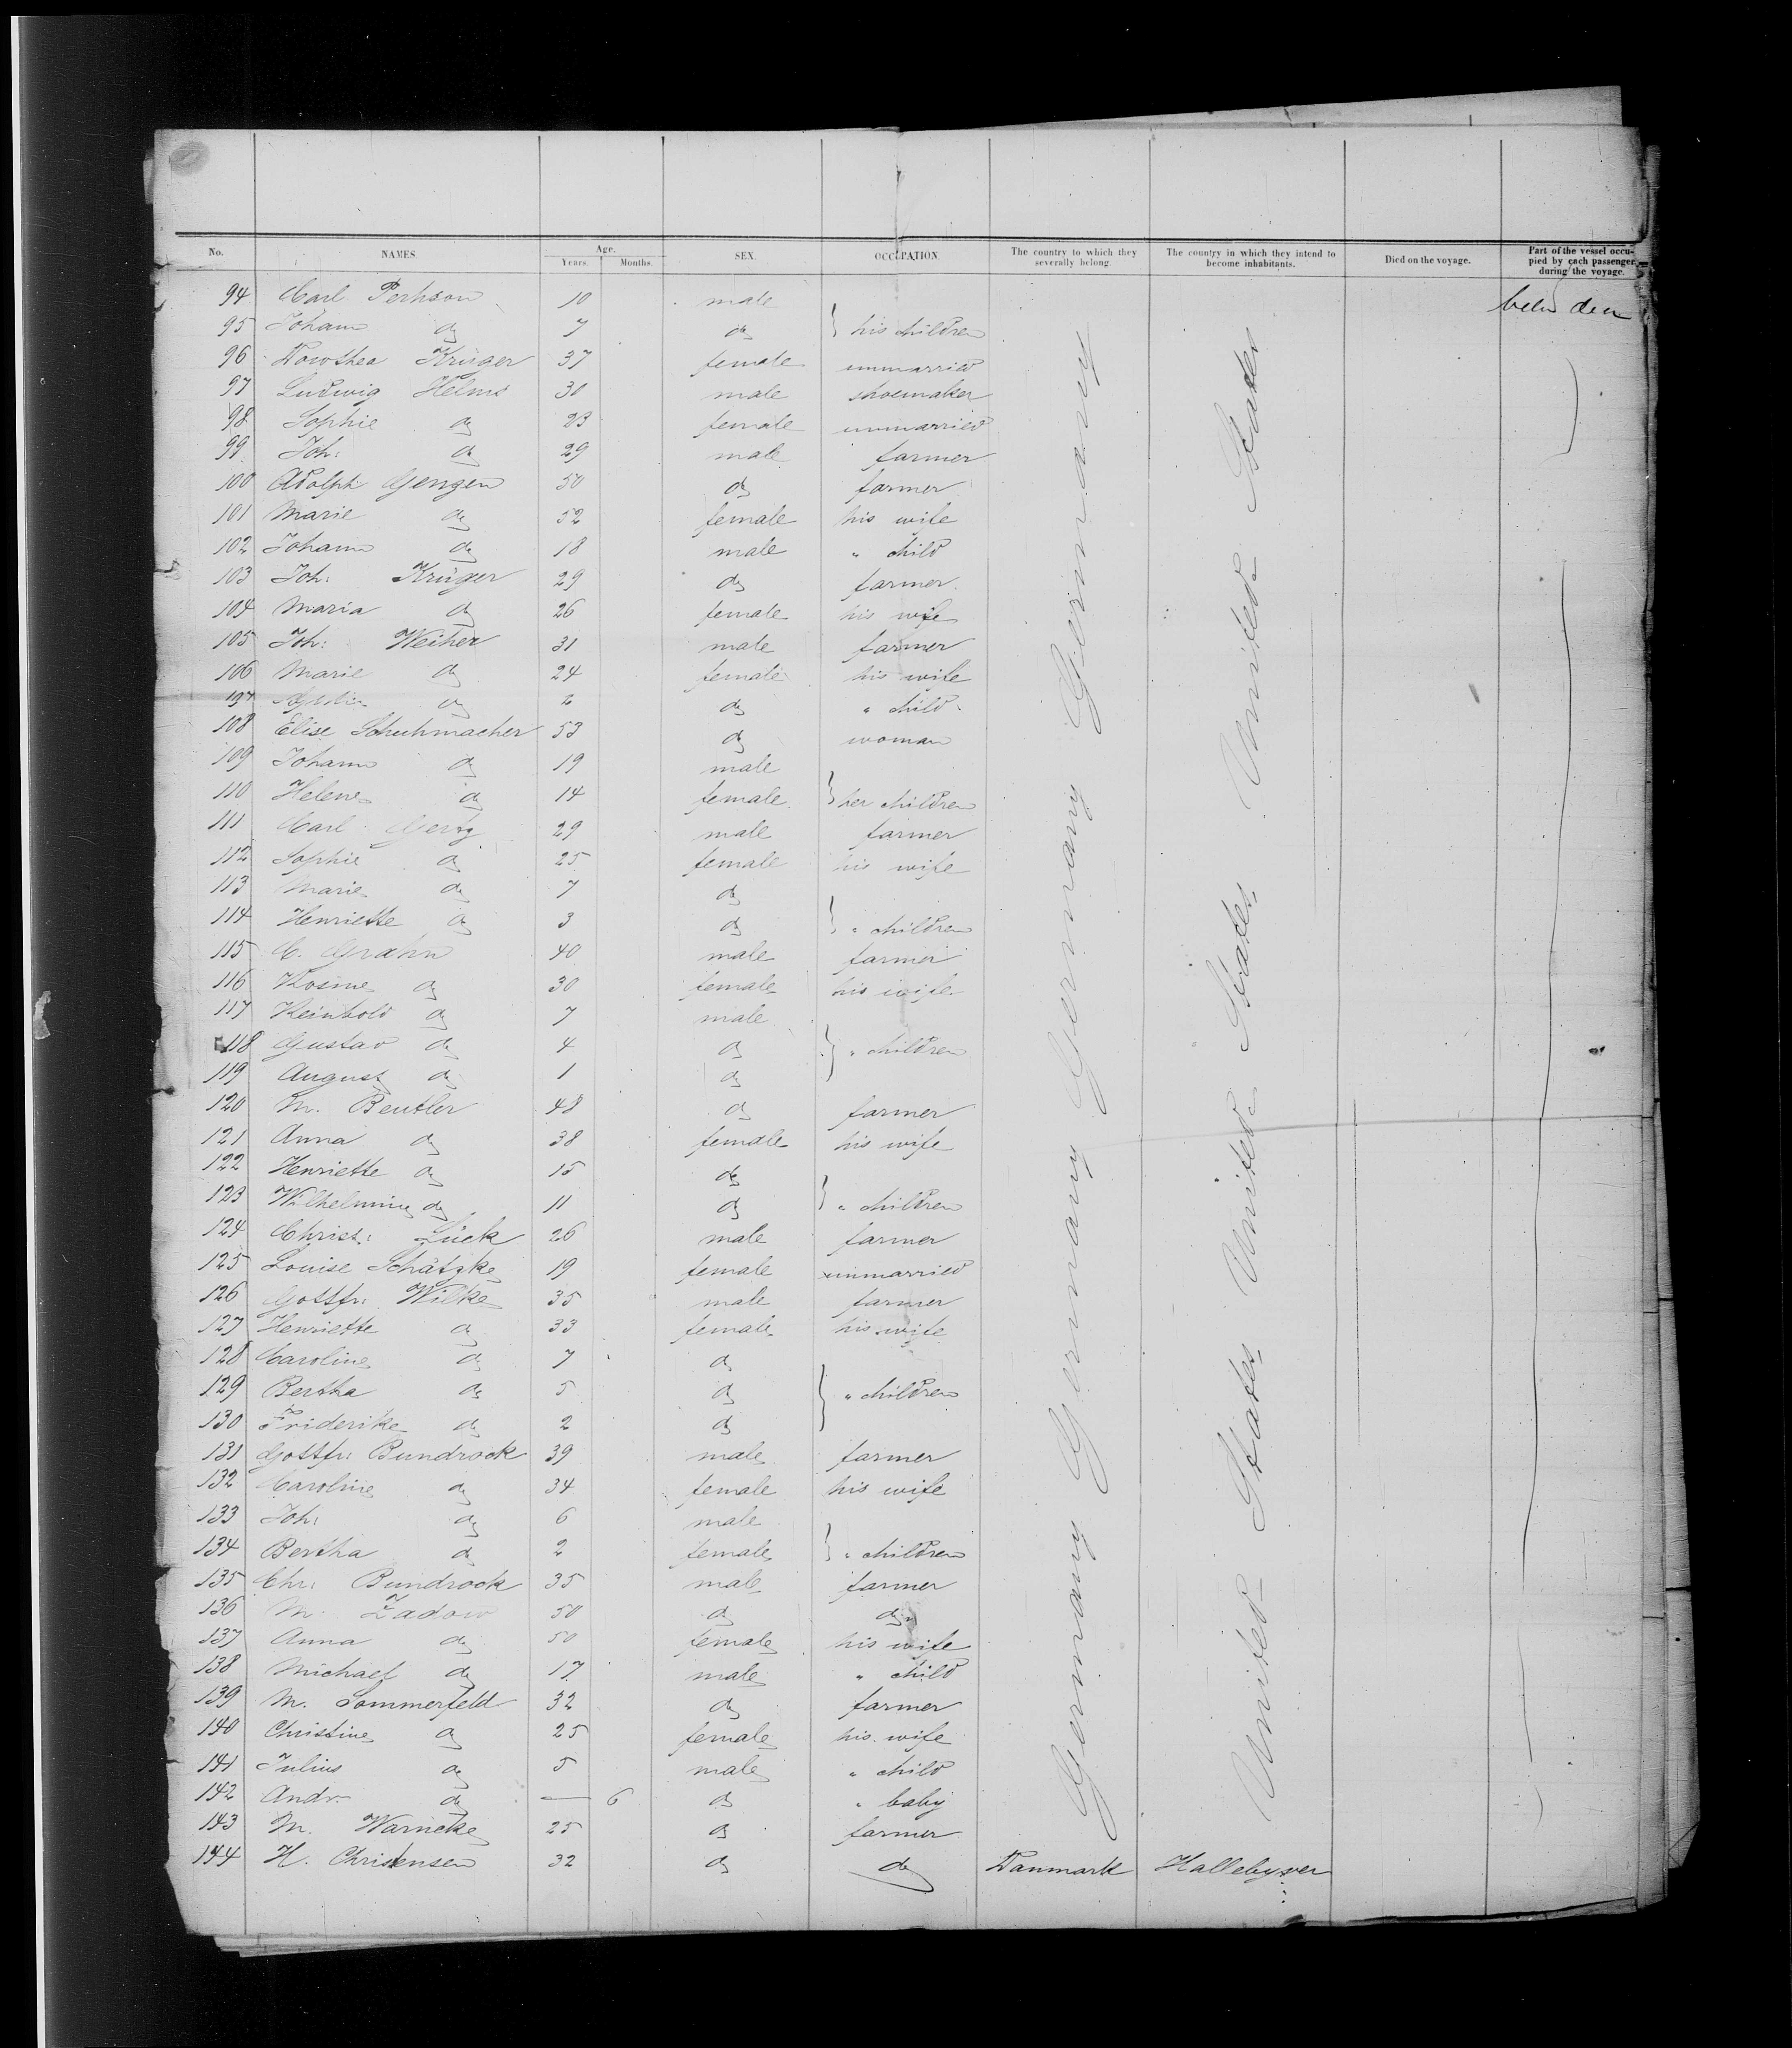 No. NAMES. Age. Years. Months. SEX. OCCUPATION. The country to which they severally belong. The country in which they intend to become inhabitants. Died on the voyage. Part of the vessel occupied by each passenger during the voyage.
94 Carl Perhson 10 male
95 Johann do 7 do } his children
96 Dorothea Krüger 37 female unmarried
97 Ludwig Helms 30 male shoemaker
98 Sophie do 23 female unmarried
99 Joh: do 29 male farmer
100 Adolph Gengen 50 do farmer
101 Marie do 52 female his wife
102 Johann do 18 male " child
103 Joh: Krüger 29 do farmer
104 Maria do 26 female his wife
105 Joh: Weiher 31 male farmer
106 Marie do 24 female his wife
107 do 2 do " child
108 Elise Schuhmacher 53 do woman
109 Johann do 19 male
110 Helene do 14 female } her children
111 Carl 29 male farmer
112 Sophie do 25 female his wife
113 Marie do 7 do
114 Henriette do 3 do } " children
115 C. Grahn 40 male farmer
116 Rosine do 30 female his wife
117 Reinhold do 7 male
118 Gustav do 4 do } " children
119 August do 1 do
120 M. Beutler 48 do farmer
121 Anna do 38 female his wife
122 Henriette do 15 do
123 Wilhelmine do 11 do } " children
124 Christ: Lück 26 male farmer
125 Louise Schätzke 19 female unmarried
126 Gottfr: Wilke 35 male farmer
127 Henriette do 33 female his wife
128 Caroline do 7 do
129 Bertha do 5 do } " children
130 Friderike do 2 do
131 Gottfr: Bundrock 39 male farmer
132 Caroline do 34 female his wife
133 Joh: do 6 male
134 Bertha do 2 female } " children
135 Chr: Bundrock 35 male farmer
136 M. Zadow 50 do do
137 Anna do 50 female his wife
138 Michael do 17 male " child
139 M. Sommerfeld 32 do farmer
140 Christine do 25 female his wife
141 Julius do 5 male " child
142 Andr. do — 6 do " baby
143 M. Warneke 25 do farmer
144 H. Christensen 32 do do Danmark
Germany Germany Germany Germany
United States United States United States